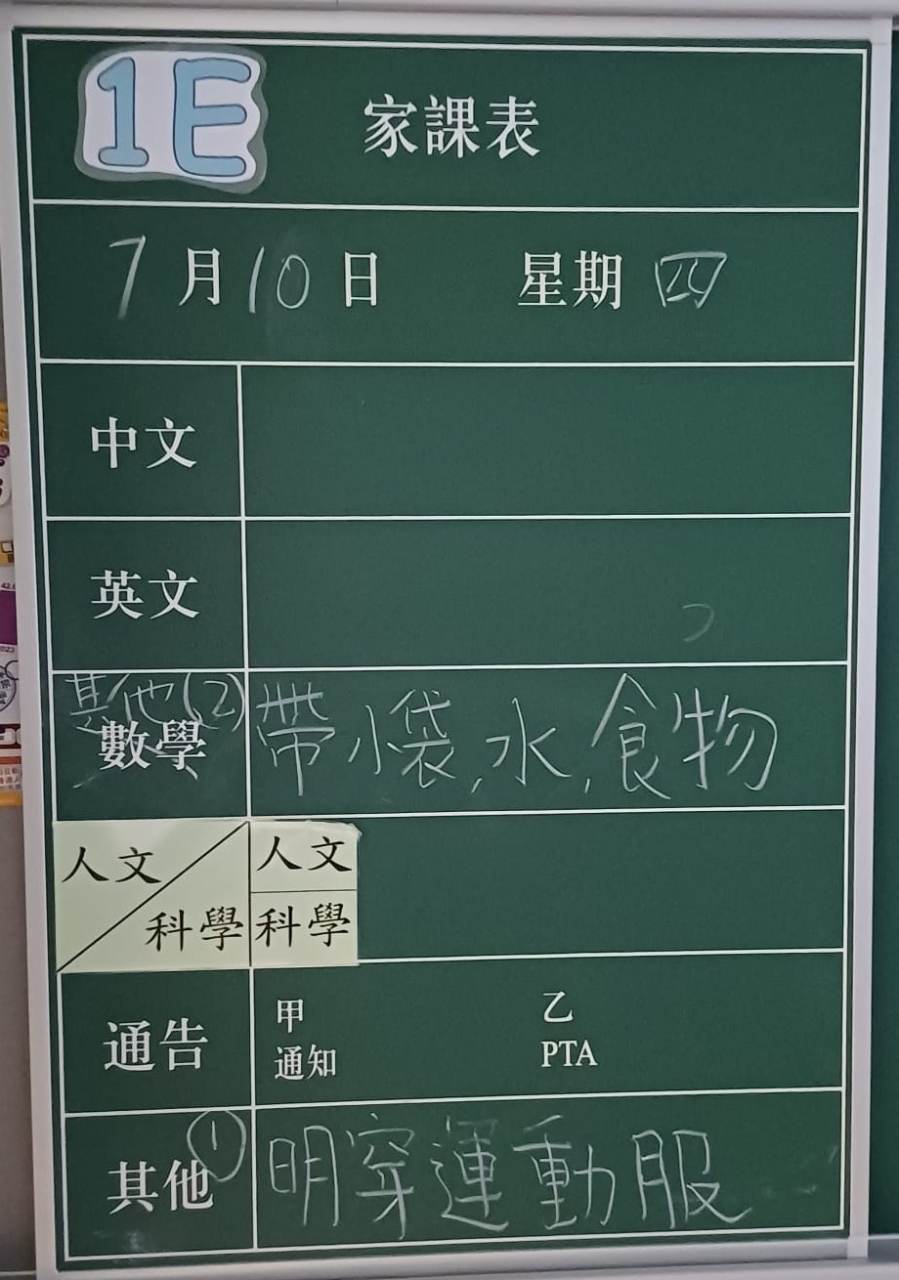 1E 家課表
7月10日 星期四
中文
英文
其他(2)
數學 帶小袋,水,食物
人文 科學
人文
科學
通告 甲 乙
通知 PTA
其他① 明穿運動服